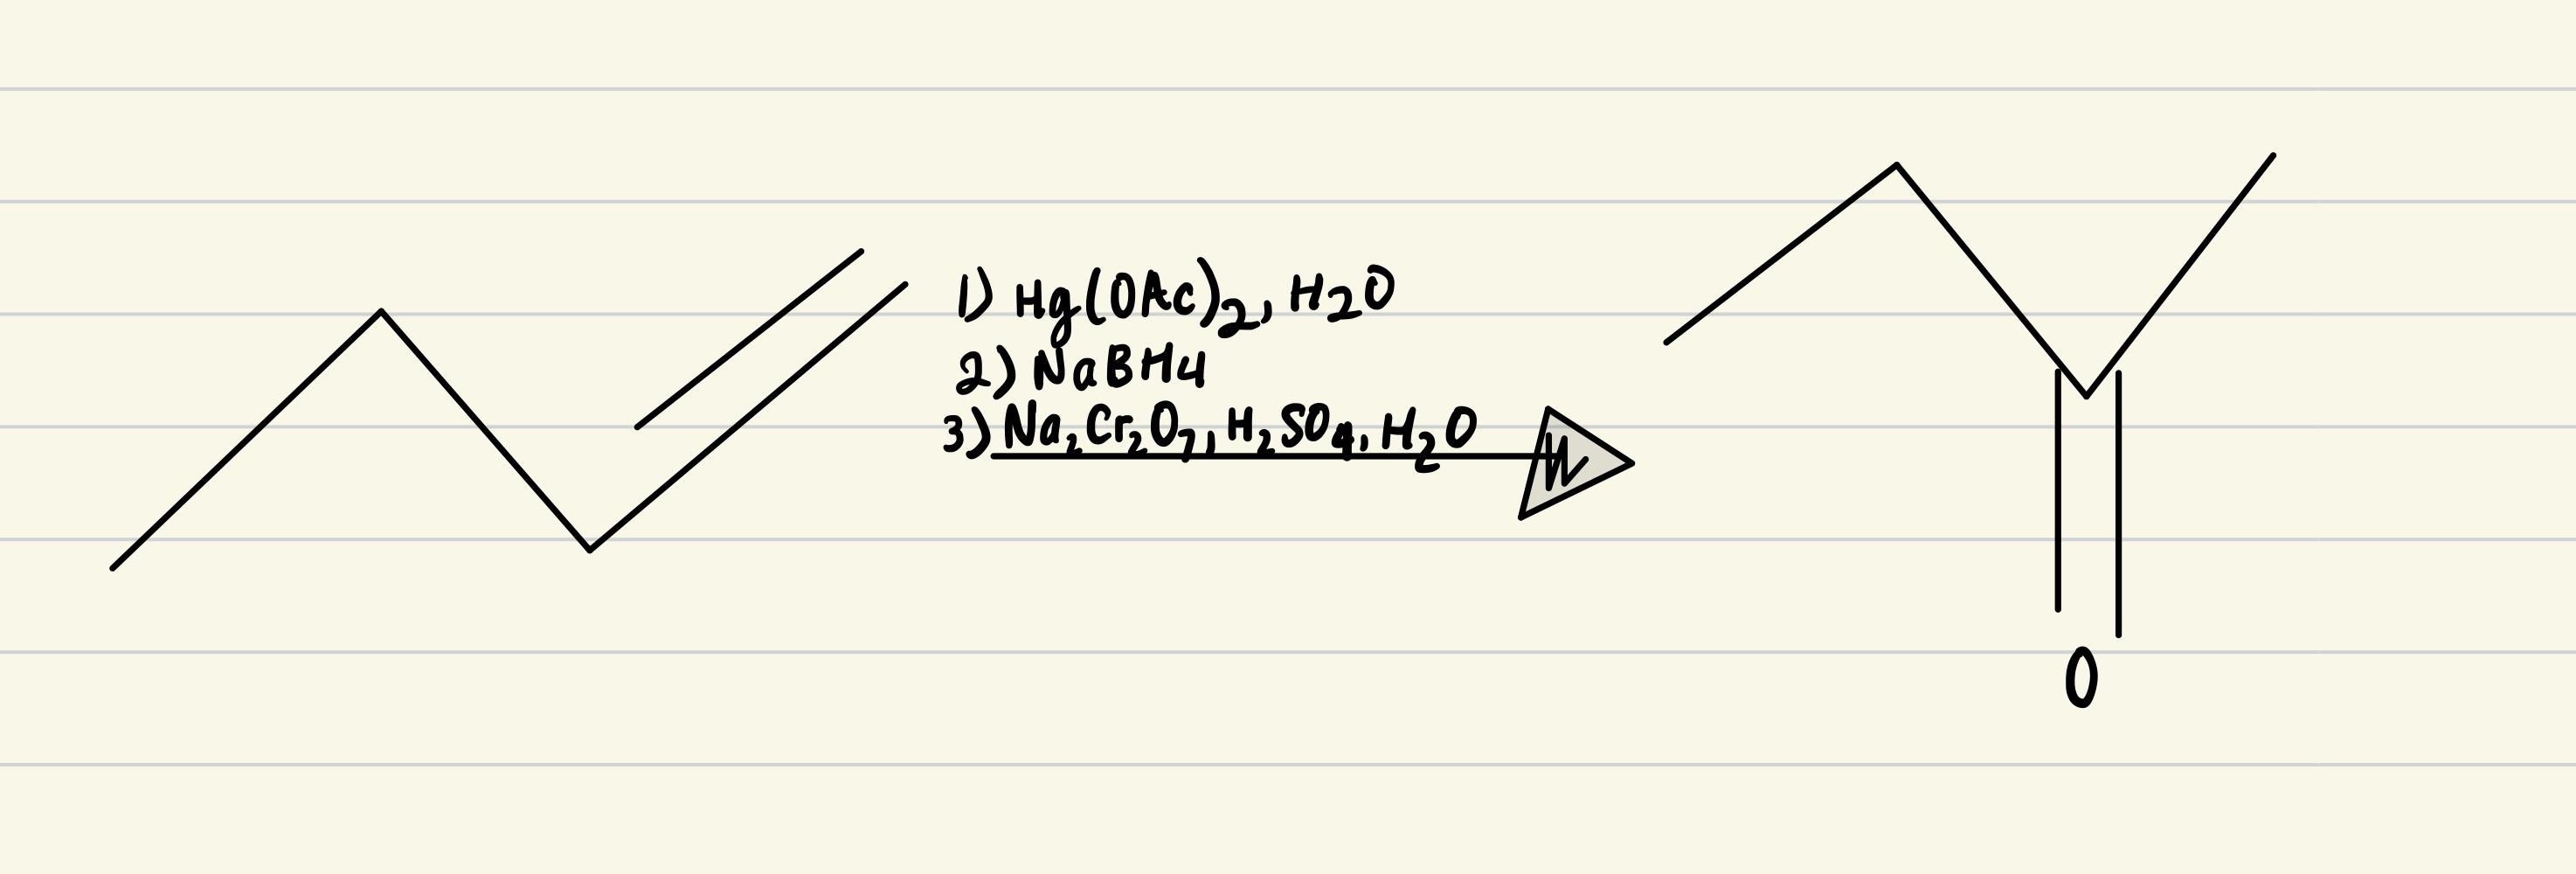 1) Hg(OAc)₂, H₂O
2) NaBH4
3) Na₂Cr₂O₇, H₂SO₄, H₂O
O